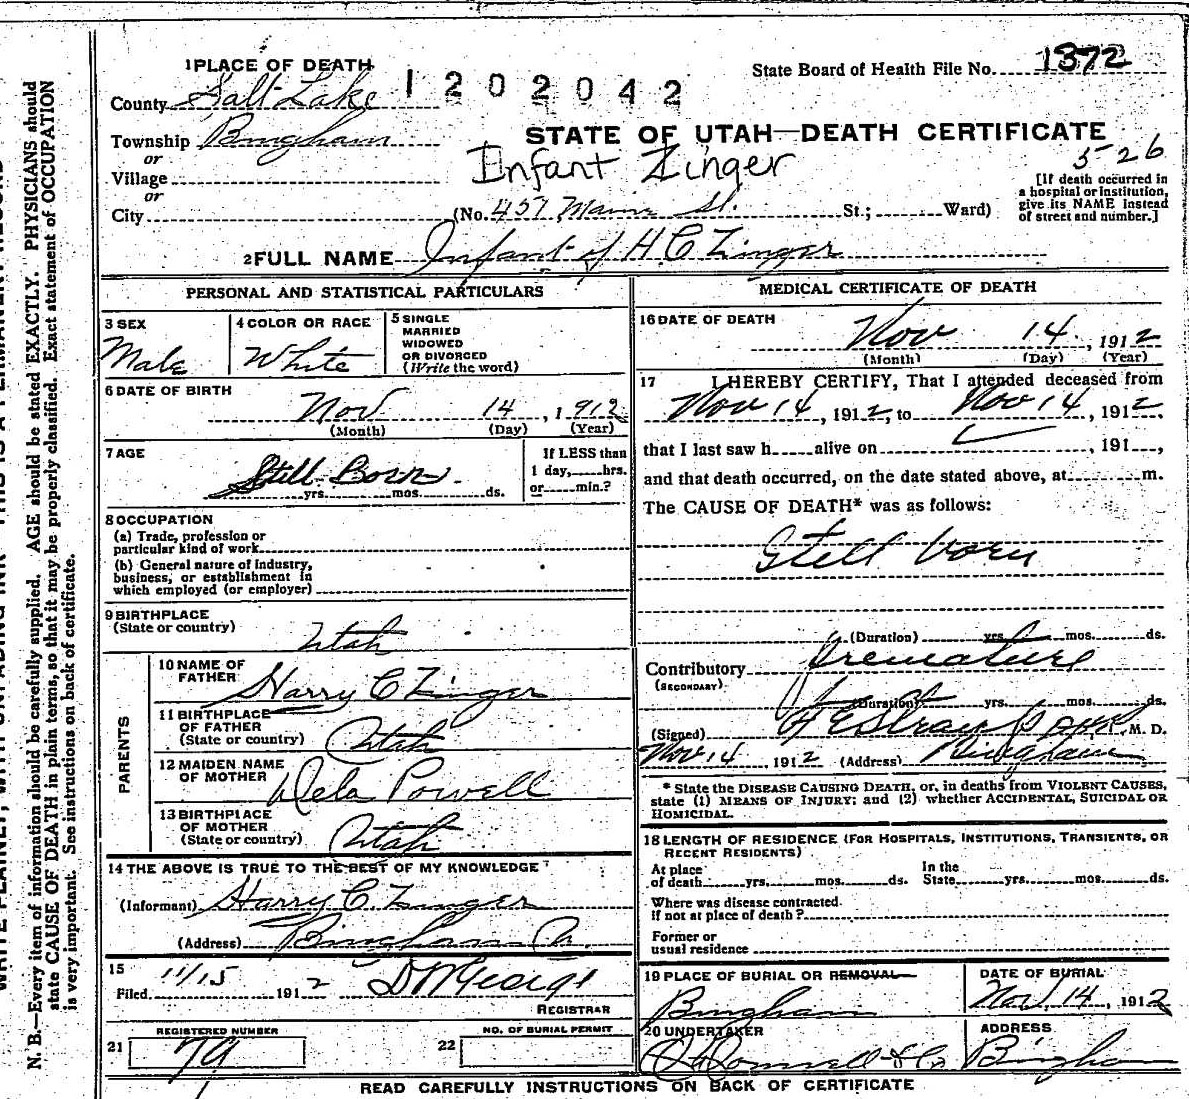 1 PLACE OF DEATH
1202042
State Board of Health File No. 1372
County Salt Lake
Township Bingham
STATE OF UTAH—DEATH CERTIFICATE
or
Village
Infant Zinger
526
or
City (No. 457 Main St. St.; Ward)
[If death occurred in
a hospital or institution,
give its NAME instead
of street and number.]
2 FULL NAME Infant of H C Zinger
PERSONAL AND STATISTICAL PARTICULARS
3 SEX
Male
4 COLOR OR RACE
White
5 SINGLE
MARRIED
WIDOWED
OR DIVORCED
(Write the word)
6 DATE OF BIRTH
Nov 14, 1912
(Month) (Day) (Year)
7 AGE
Still Born
yrs. mos. ds.
If LESS than
1 day, hrs.
or min.?
8 OCCUPATION
(a) Trade, profession or
particular kind of work
(b) General nature of Industry,
business, or establishment in
which employed (or employer)
9 BIRTHPLACE
(State or country)
Utah
PARENTS
10 NAME OF
FATHER
Harry C Zinger
11 BIRTHPLACE
OF FATHER
(State or country)
Utah
12 MAIDEN NAME
OF MOTHER
Dela Powell
13 BIRTHPLACE
OF MOTHER
(State or country)
Utah
14 THE ABOVE IS TRUE TO THE BEST OF MY KNOWLEDGE
(Informant) Harry C. Zinger
(Address) Bingham
15
Filed 11/15 1912
REGISTRAR
REGISTERED NUMBER
21 79
NO. OF BURIAL PERMIT
22
MEDICAL CERTIFICATE OF DEATH
16 DATE OF DEATH
Nov 14, 1912
(Month) (Day) (Year)
17 I HEREBY CERTIFY, That I attended deceased from
Nov 14, 1912, to Nov 14, 1912,
that I last saw h alive on , 191 ,
and that death occurred, on the date stated above, at m.
The CAUSE OF DEATH* was as follows:
Still born
(Duration) yrs. mos. ds.
Contributory Premature
(SECONDARY)
(Duration) yrs. mos. ds.
(Signed) M. D.
Nov 14, 1912 (Address) Bingham
* State the DISEASE CAUSING DEATH, or, in deaths from VIOLENT CAUSES,
state (1) MEANS OF INJURY; and (2) whether ACCIDENTAL, SUICIDAL OR
HOMICIDAL.
18 LENGTH OF RESIDENCE (FOR HOSPITALS, INSTITUTIONS, TRANSIENTS, OR
RECENT RESIDENTS)
At place
of death yrs. mos. ds.
In the
State yrs. mos. ds.
Where was disease contracted
If not at place of death?
Former or
usual residence
19 PLACE OF BURIAL OR REMOVAL
Bingham
DATE OF BURIAL
Nov. 14, 1912
20 UNDERTAKER
O'Donnell & Co
ADDRESS
Bingham
READ CAREFULLY INSTRUCTIONS ON BACK OF CERTIFICATE
N. B.—Every item of information should be carefully supplied. AGE should be stated EXACTLY. PHYSICIANS should
state CAUSE OF DEATH in plain terms, so that it may be properly classified. Exact statement of OCCUPATION
is very important. See instructions on back of certificate.